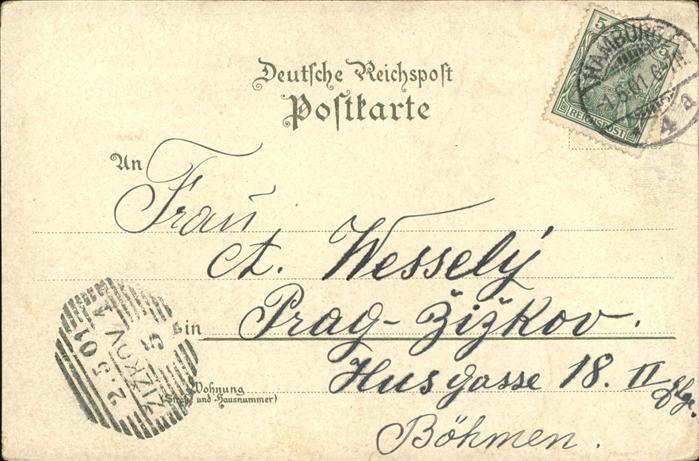 Deutsche Reichspost
Postkarte
5 5
REICHSPOST
HAMBURG
4
An
Frau
A. Wessely
in
Prag-Žižkov.
Wohnung
(Straße und Hausnummer)
Husgasse 18. II
Böhmen.
2.5.01
ŽIŽKOV 1
5